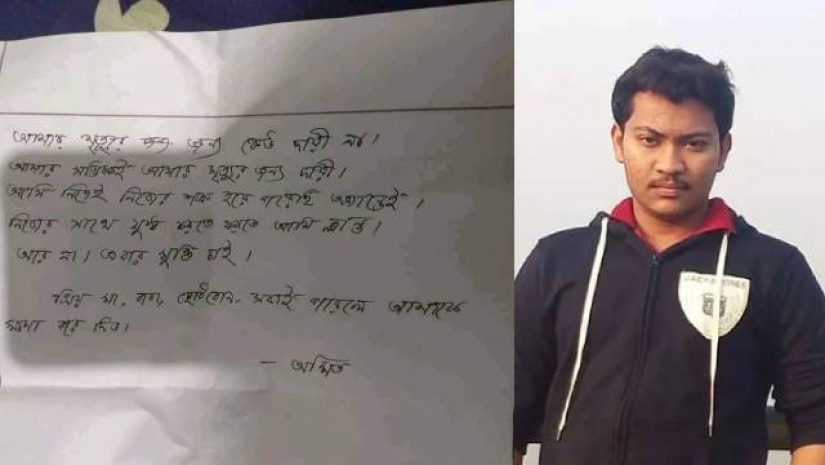 আমার মৃত্যুর জন্য কেউ দায়ী না।
আমার মস্তিষ্কই আমার মৃত্যুর জন্য দায়ী।
আমি নিজেই নিজের শত্রু হয়ে পড়েছি অজান্তেই।
নিজের সাথে যুদ্ধ করতে করতে আমি ক্লান্ত।
আর না। এবার মুক্তি চাই।
প্রিয় মা, বাবা, ছোটবোন, সবাই পারলে আমাকে
ক্ষমা করে দিও।
– অমিত
JACK JONES